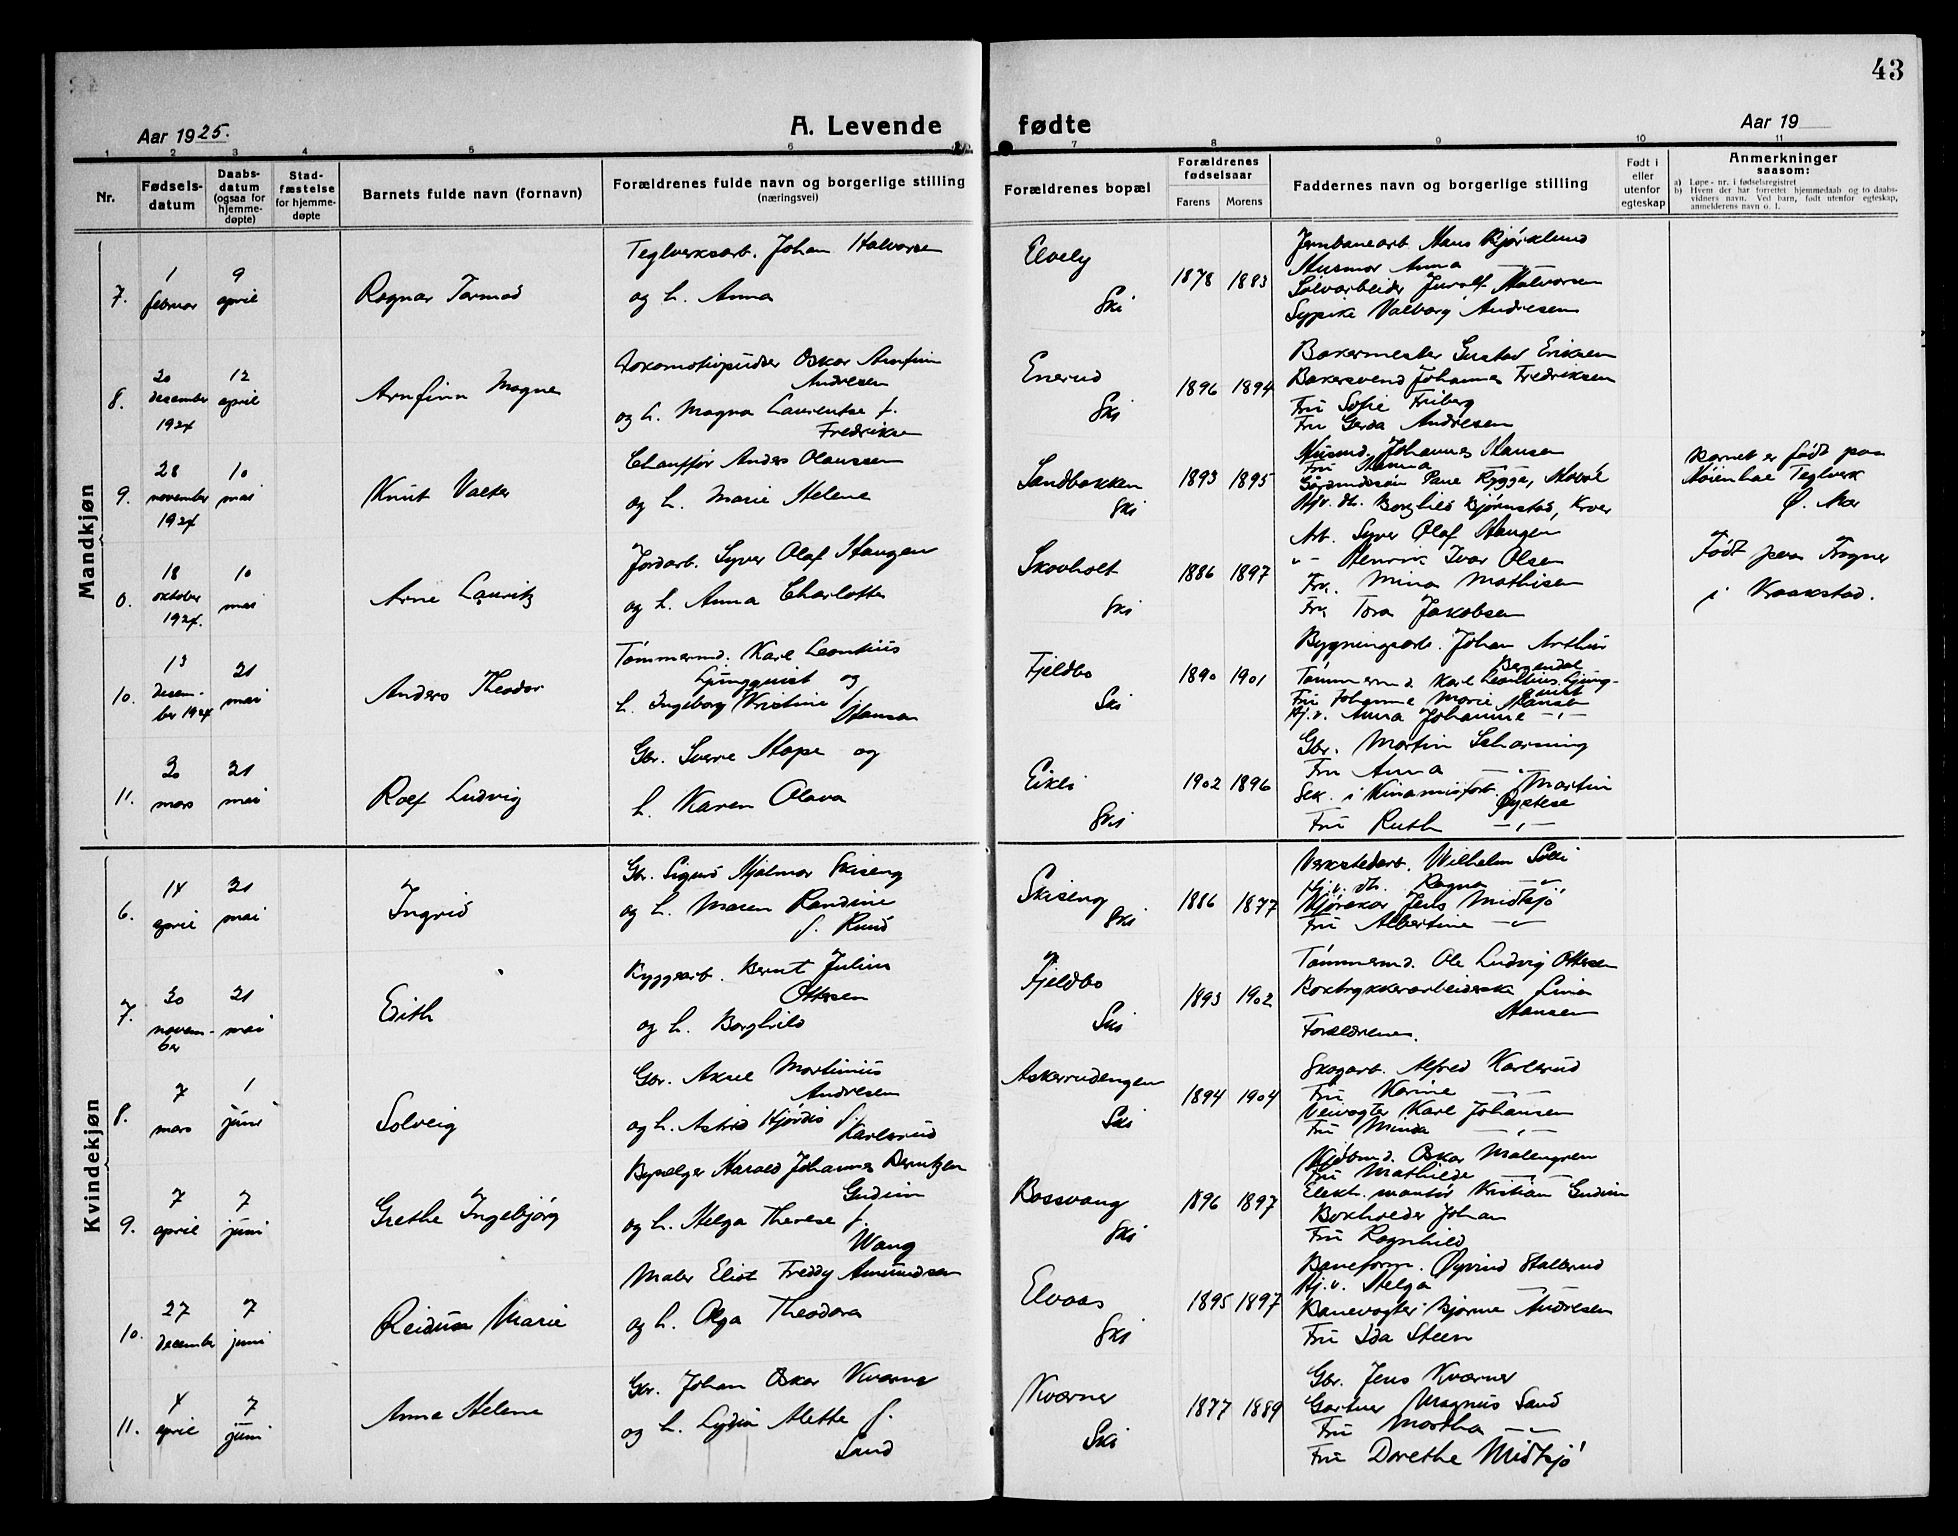 43
Aar 1925.
A. Levende fødte
Aar 19
1 2 3 4 5 6 7 8 9 10 11
Nr.
Fødsels-
datum
Daabs-
datum
(ogsaa for
hjemme-
døpte)
Stad-
fæstelse
for hjemme-
døpte
Barnets fulde navn (fornavn)
Forældrenes fulde navn og borgerlige stilling
(næringsvei)
Forældrenes bopæl
Forældrenes
fødselsaar
Farens Morens
Faddernes navn og borgerlige stilling
Født i
eller
utenfor
egteskap
Anmerkninger
saasom:
a) Løpe-nr. i fødselsregistret
b) Hvem der har forrettet hjemmedaab og to daabs-
vidners navn. Ved barn, født utenfor egteskap,
anmelderens navn o. l.
Mandkjøn
7.
1
februar
9
april
Ragnar Tormod
Teglverksarb. Johan Halvorsen
og h. Anna
Elvely
Ski
1878 1883
Jernbanearb. Hans Bjørklund
Husmor Anna —
Sølvarbeider Halvorsen
Sypike Valborg Andresen
8.
30
desember
1924
12
april
Arnfinn Magne
Lokomotivpudser Oskar Arnfinn
Andresen
og h. Magna Laurentse f.
Fredriksen
Enerud
Ski
1896 1894
Bakermester Gustav Eriksen
Bakersvend Johannes Fredriksen
Fru Sofie Friberg
Fru Gerda Andresen
9.
28
november
1924
10
mai
Knut Valter
Chauffør Anders Olaussen
og h. Marie Helene
Sandbakken
Ski
1893 1895
Husmd. Johannes Hansen
Fru Hanna
Rygge,
Hjv. dt. Borghild Bjørnstad, Kroer
Barnet er født paa
Teglverk
Ø. Aker
0.
18
oktober
1924.
10
mai
Arne Lauritz
Jordarb. Syver Olaf Haugen
og h. Anna Charlotte
Skovholt
Ski
1886 1897
Arb. Syver Olaf Haugen
"- Henrik Ivar Olsen
Fru. Mina Mathisen
Fru Tora Jakobsen
Født paa Frogner
i Kraakstad.
10.
13
desem-
ber 1924
21
mai
Anders Theodor
Tømmermd. Karl Leontius
Ljungquist og
h. Ingeborg Kristine f.
Hansen
Fjeldbo
Ski
1890 1901
Bygningsarb. Johan Arthur
Bergendal
Tømmermd. Karl Leontius Ljung-
quist
Fru Johanne Marie Hansen
Hj.v. Anna Johanne —"—
11.
30
mars
21
mai
Rolf Ludvig
Gbr. Sverre Hope og
h. Karen Olava
Eikli
Ski
1902 1896
Gbr. Martin Scharning
Fru Anna —
Sek. i Kinamisforb. Martin
Øystese
Fru Ruth —"—
Kvindekjøn
6.
14
april
21
mai
Ingrid
Gbr. Sigurd Hjalmar Skiseng
og h. Maren Randine
f. Ruud
Skiseng
Ski
1886 1877
Verkstedarb. Wilhelm
Hj.v. dt. Ragna —"—
Kjørekar Jens Midtsjø
Fru Albertine —"—
7.
30
novem-
ber
21
mai
Edith
Byggearb. Bernt Julius
Ottesen
og h. Borghild
Fjeldbo
Ski
1893 1902
Tømmermd. Ole Ludvig Ottesen
Boktrykkerarbeiderske Lina
Hansen
Forældrene.
8.
7
mars
1
juni
Solveig
Gbr. Aksel Martinius
Andresen
og h. Astrid Hjørdis f.
Karlsrud
Askerudengen
Ski
1894 1904
Skogarb. Alfred Karlsrud
Fru Karine —"—
Veivogter Karl Johansen
Fru Minda —"—
9.
7
april
7
juni
Grethe Ingebjørg
Bysælger Harald Johannes Berntzen
Gudim
og h. Helga Therese f.
Wang
Bossvang
Ski
1896 1897
Oskar Malmgren
Fru Mathilde —"—
Elektr. montør Kristian Gudim
Bokholder Johan
Fru Ragnhild
10.
27
december
7
juni
Reidun Marie
Maler Eliot Freddy Amundsen
og h. Olga Theodora
Elvaas
Ski
1895 1897
Baneform. Øyvind Stallerud
Hj.v. Helga —
Banevogter Bjarne Andresen
Fru Ida Steen
11.
4
april
7
juni
Anna Helene
Gbr. Johan Oskar Kværner
og h. Lydia Alette f.
Sand
Kværner
Ski
1877 1889
Gbr. Jens Kværner
Gartner Magnus Sand
Fru Martha —"—
Fru Dorethe Midtsjø